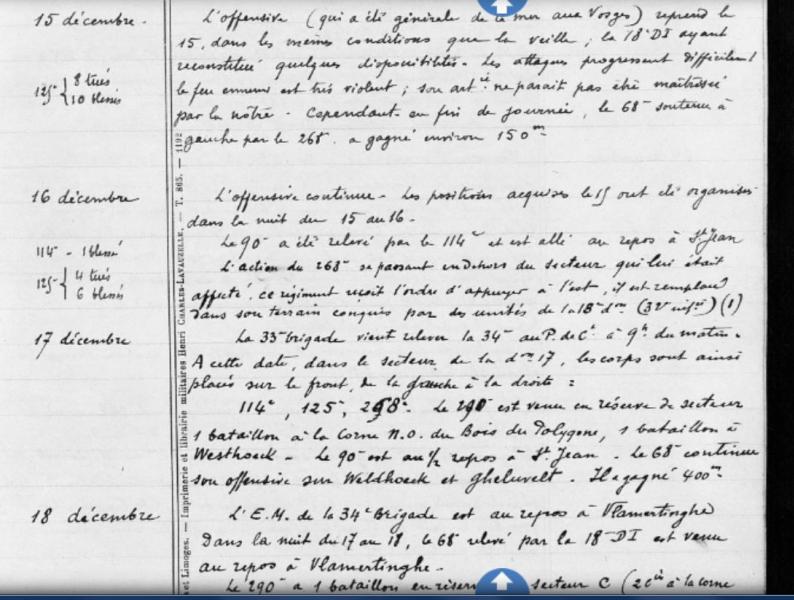 15 décembre.
L'offensive (qui a été générale de la mer aux Vosges) reprend le
15, dans les mêmes conditions que la veille ; la 18e DI ayant
reconstitué quelques disponibilités. Les attaques progressent difficilemt
125e { 8 tués
10 blessés
le feu ennemi est très violent ; son artie ne parait pas être maîtrisée
par la nôtre. Cependant en fin de journée, le 68e soutenu à
gauche par le 268e a gagné environ 150m.
16 décembre
L'offensive continue. Les positions acquises le 15 ont été organisées
dans la nuit du 15 au 16.
114e - 1 blessé
Le 90e a été relevé par le 114e et est allé au repos à St Jean
125e { 4 tués
6 blessés
L'action du 268e se passant en dehors du secteur qui lui était
affecté, ce régiment reçoit l'ordre d'appuyer à l'est, il est remplacé
dans son terrain conquis par des unités de la 18e don (1)
17 décembre
La 33e brigade vient relever la 34e au P. de Ct à 9h du matin.
A cette date, dans le secteur de la don 17, les corps sont ainsi
placés sur le front, de la gauche à la droite :
114e, 125e, 268e. Le 290e est venu en réserve de secteur
1 bataillon à la Corne N.O. du Bois du Polygone, 1 bataillon à
Westhoek. Le 90e est au 1/2 repos à St Jean. Le 68e continue
son offensive sur Weldhoek et Gheluvelt. Il a gagné 400m.
18 décembre
L'E.M. de la 34e Brigade est au repos à Vlamertinghe
Dans la nuit du 17 au 18, le 68e relevé par la 18e DI est venu
au repos à Vlamertinghe.
Le 290e a 1 bataillon en secteur C (2 Cies à la corne
et Limoges. — Imprimerie et librairie militaires Henri CHARLES-LAVAUZELLE. — T. 865. — 1192